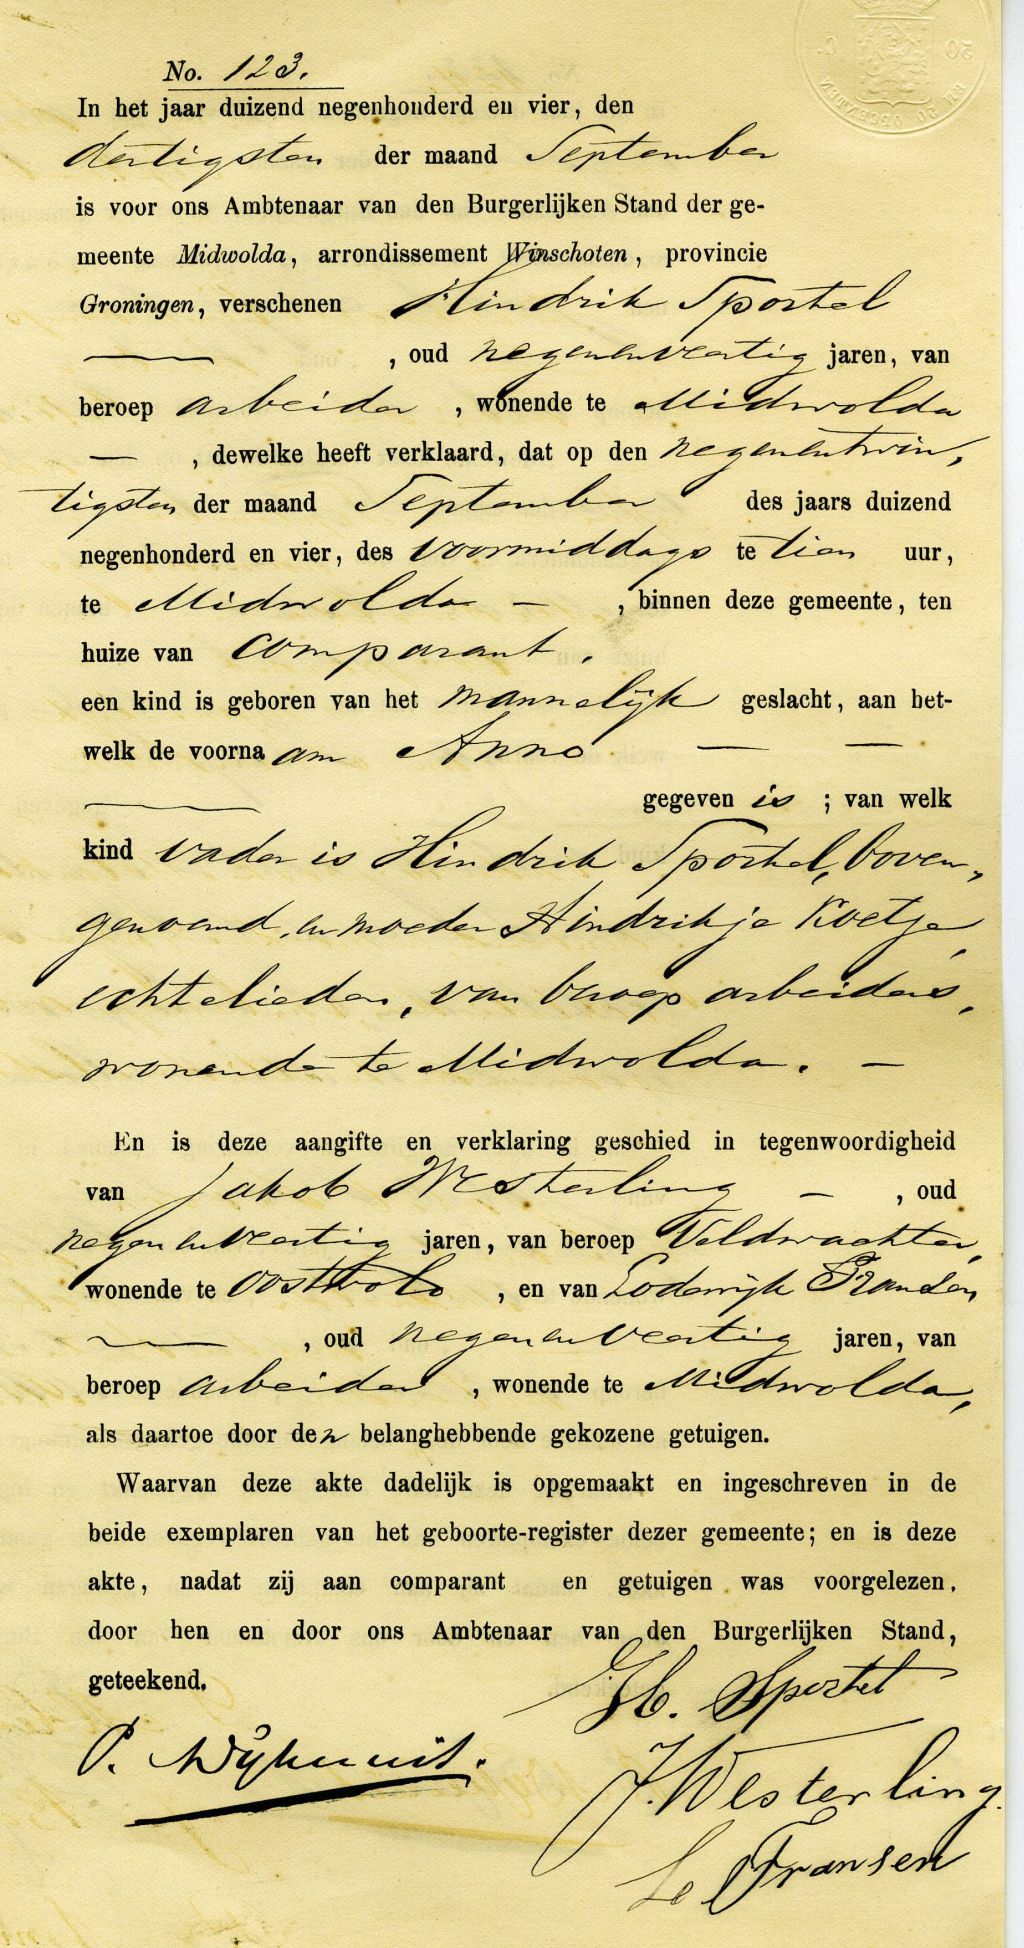 No. 123.
In het jaar duizend negenhonderd en vier, den
dertigsten der maand September
is voor ons Ambtenaar van den Burgerlijken Stand der ge-
meente Midwolda, arrondissement Winschoten, provincie
Groningen, verschenen Hindrik Sportel
, oud negenenveertig jaren, van
beroep arbeider, wonende te Midwolda
—, dewelke heeft verklaard, dat op den negenentwin,
tigsten der maand September des jaars duizend
negenhonderd en vier, des voormiddags te tien uur,
te Midwolda —, binnen deze gemeente, ten
huize van comparant.
een kind is geboren van het mannelijk geslacht, aan het-
welk de voornaam Anno — —
gegeven is; van welk
kind vader is Hindrik Sportel, boven,
genoemd, en moeder Hindrikje Koetje,
echtelieden, van beroep arbeiders,
wonende te Midwolda. —
En is deze aangifte en verklaring geschied in tegenwoordigheid
van Jakob Westerling —, oud
negenenveertig jaren, van beroep Veldwachter,
wonende te Oostwold, en van Lodewijk Fransen,
—, oud negenenveertig jaren, van
beroep arbeider, wonende te Midwolda,
als daartoe door den belanghebbende gekozene getuigen.
Waarvan deze akte dadelijk is opgemaakt en ingeschreven in de
beide exemplaren van het geboorte-register dezer gemeente; en is deze
akte, nadat zij aan comparant en getuigen was voorgelezen,
door hen en door ons Ambtenaar van den Burgerlijken Stand,
geteekend.
H. Sportel
P.
J. Westerling.
L. Fransen
50 C.